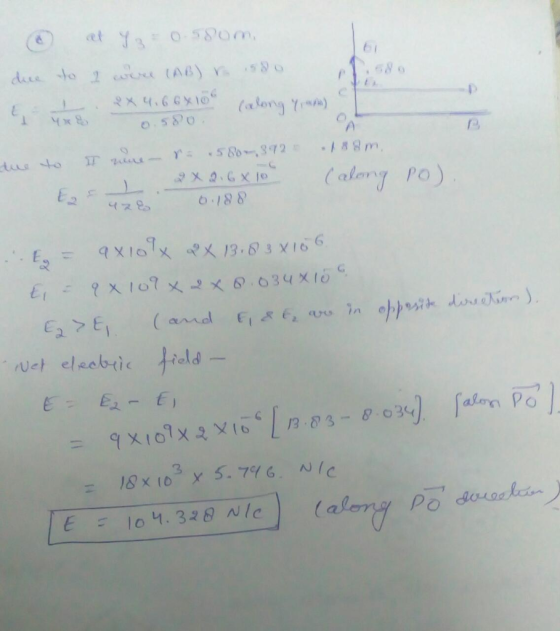 (c) at y₃ = 0.580m.
due to I wire (AB) r = .580
E₁ = 1/4πε₀ · 2×4.66×10⁻⁶/0.580 (along y, axis)
E₁
P .580
C E₂ D
O
A B
due to II wire – r = .580-.392 = .188m
E₂ = 1/4πε₀ · 2×2.6×10⁻⁶/0.188 (along PO).
∴ E₂ = 9×10⁹× 2×13.83×10⁻⁶
E₁ = 9×10⁹×2×8.034×10⁻⁶
E₂>E₁ (and E₁ & E₂ are in opposite direction).
Net electric field –
E = E₂ - E₁
= 9×10⁹×2×10⁻⁶ [13.83 - 8.034]. [alon PO⃗].
= 18×10³ × 5.796. N/C
E = 104.328 N/C (along PO⃗ direction)